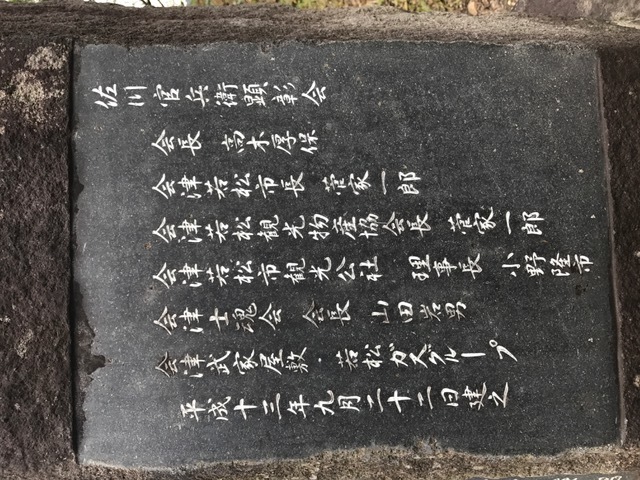 佐川官兵衛顕彰会
会長 高木厚保
会津若松市長 菅家一郎
会津若松観光物産協会長 菅家一郎
会津若松市観光公社 理事長 小野隆市
会津士魂会 会長 山田岩男
会津武家屋敷・若松ガスグループ
平成十三年九月二十二日建之